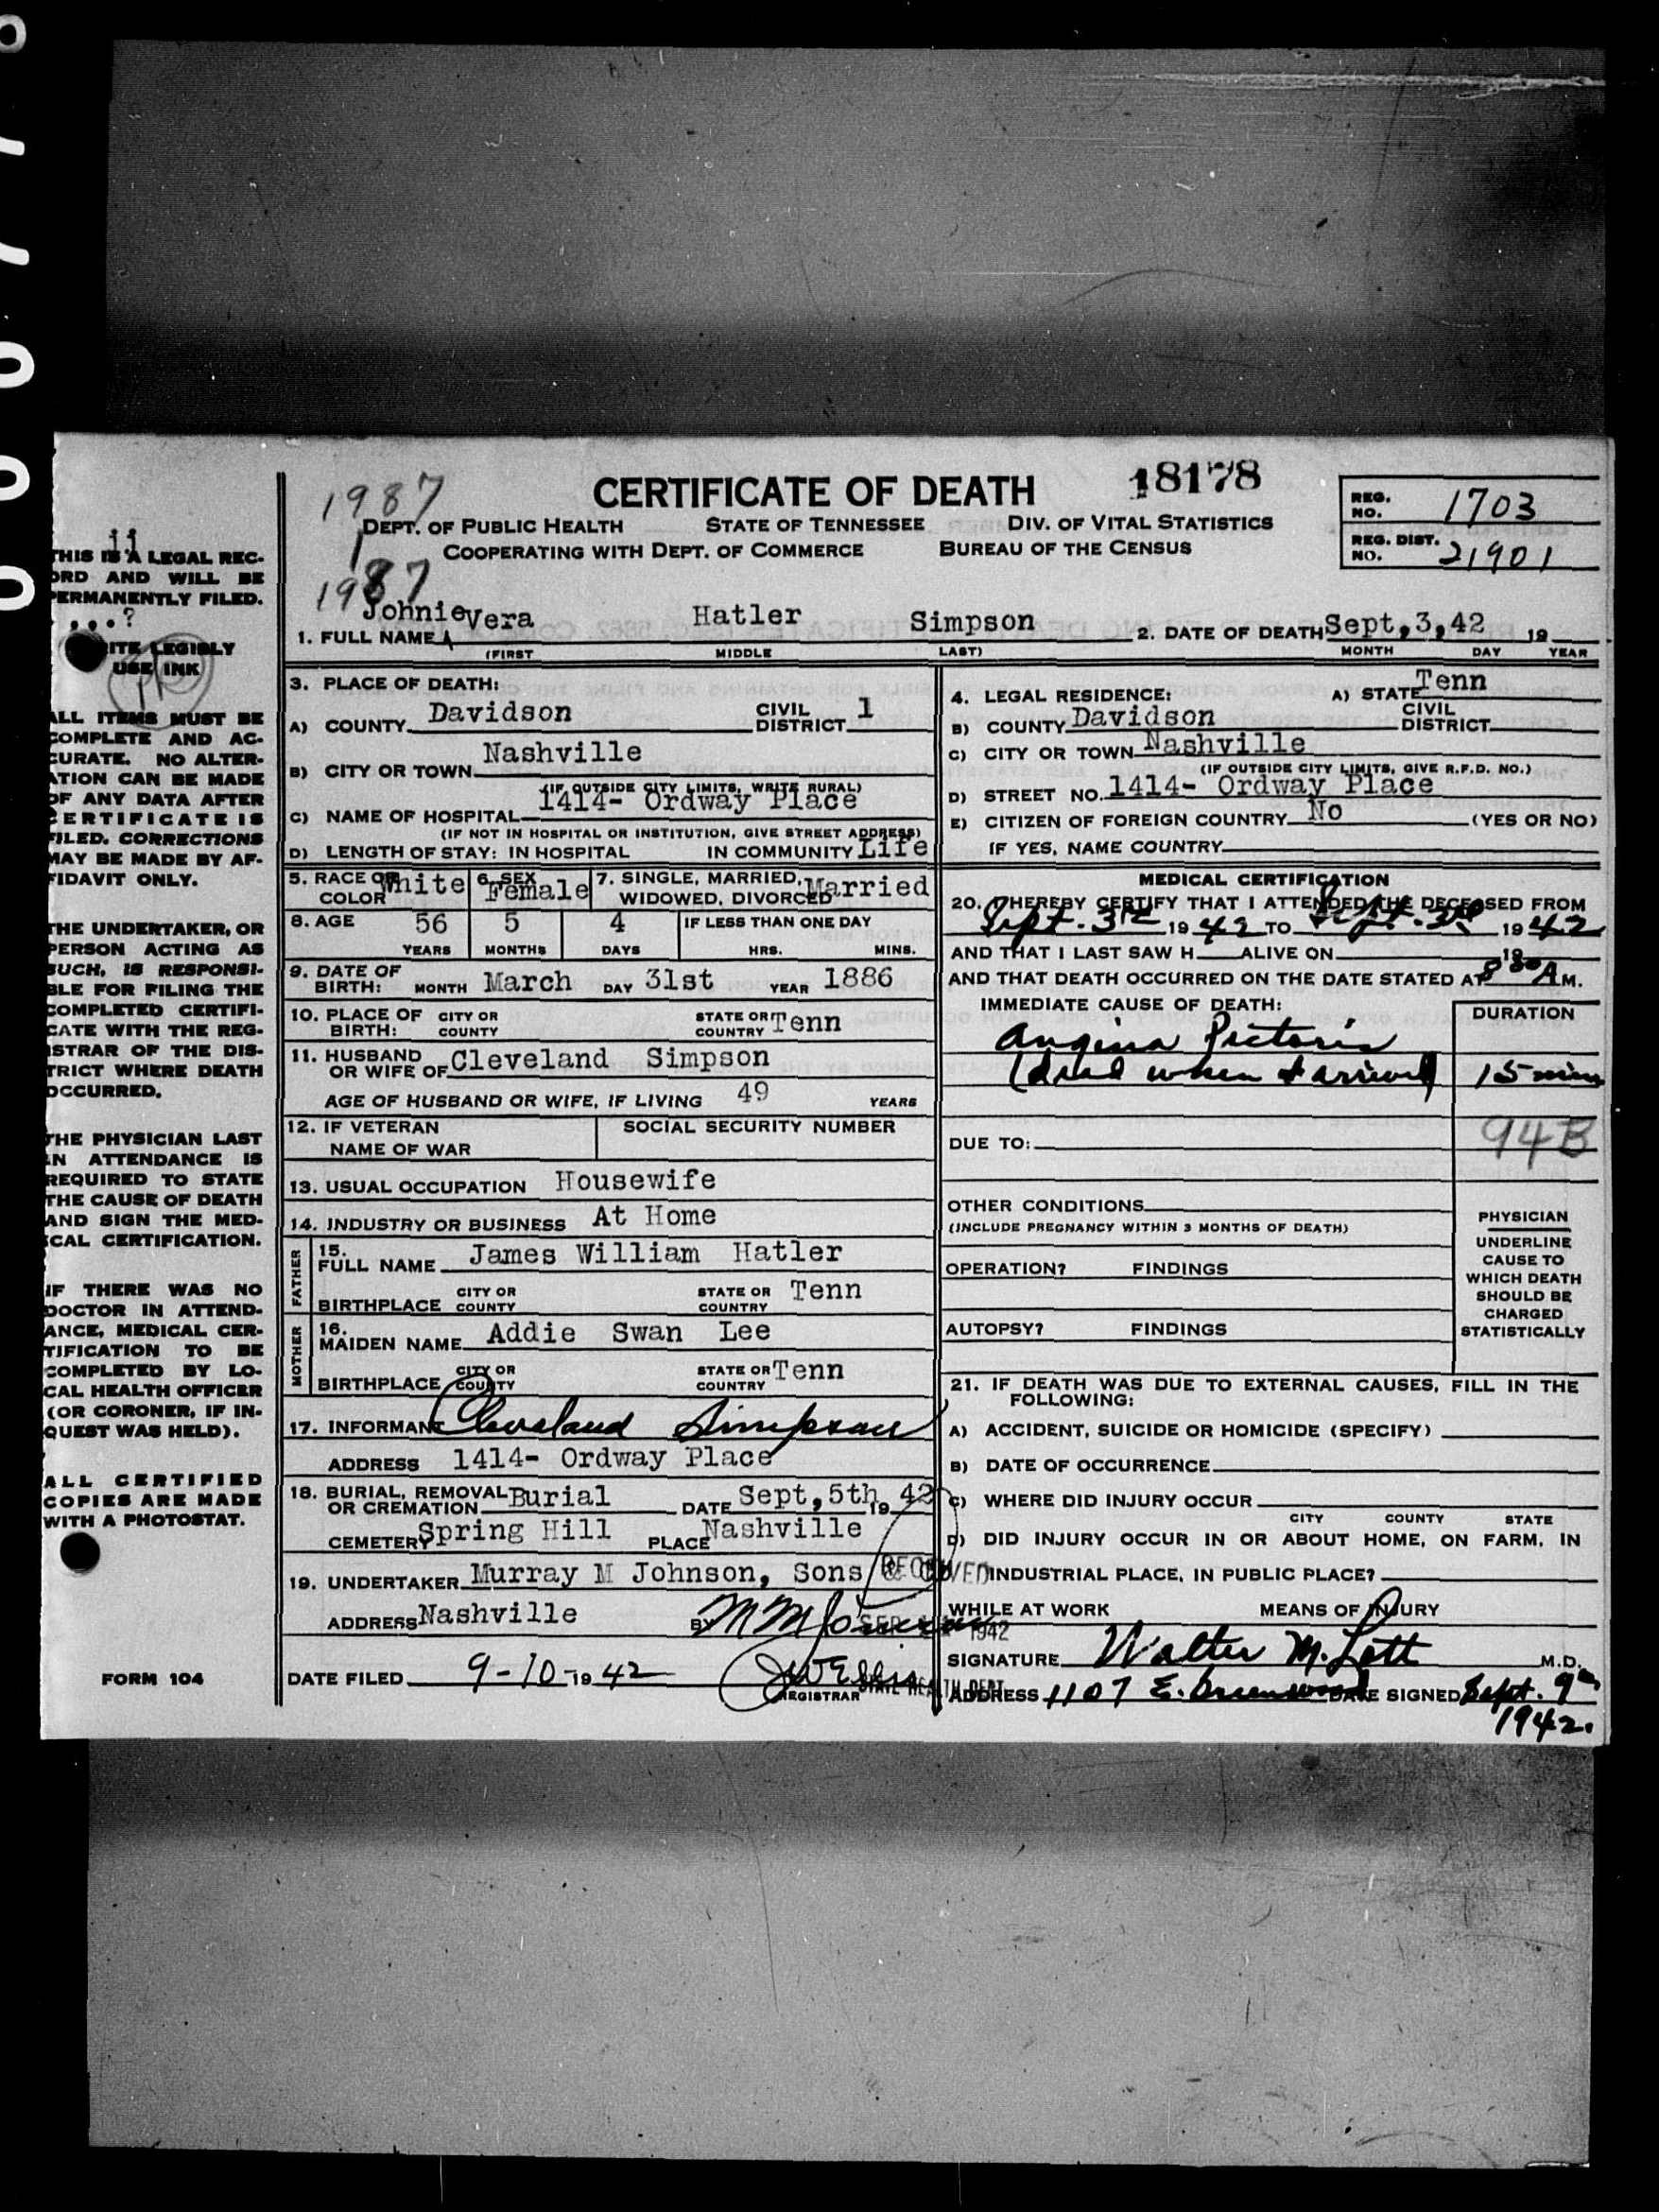 1987
CERTIFICATE OF DEATH
18178
REG. NO. 1703
DEPT. OF PUBLIC HEALTH STATE OF TENNESSEE DIV. OF VITAL STATISTICS
COOPERATING WITH DEPT. OF COMMERCE BUREAU OF THE CENSUS
REG. DIST. NO. 21901
1
1987
11
THIS IS A LEGAL REC-
ORD AND WILL BE
PERMANENTLY FILED.
...?
WRITE LEGIBLY
USE INK
ALL ITEMS MUST BE
COMPLETE AND AC-
CURATE. NO ALTER-
ATION CAN BE MADE
OF ANY DATA AFTER
CERTIFICATE IS
FILED. CORRECTIONS
MAY BE MADE BY AF-
FIDAVIT ONLY.
THE UNDERTAKER, OR
PERSON ACTING AS
SUCH, IS RESPONSI-
BLE FOR FILING THE
COMPLETED CERTIFI-
CATE WITH THE REG-
ISTRAR OF THE DIS-
TRICT WHERE DEATH
OCCURRED.
THE PHYSICIAN LAST
IN ATTENDANCE IS
REQUIRED TO STATE
THE CAUSE OF DEATH
AND SIGN THE MED-
ICAL CERTIFICATION.
IF THERE WAS NO
DOCTOR IN ATTEND-
ANCE, MEDICAL CER-
TIFICATION TO BE
COMPLETED BY LO-
CAL HEALTH OFFICER
(OR CORONER, IF IN-
QUEST WAS HELD).
ALL CERTIFIED
COPIES ARE MADE
WITH A PHOTOSTAT.
FORM 104
1. FULL NAME Johnie Vera Hatler Simpson
(FIRST MIDDLE LAST)
2. DATE OF DEATH Sept, 3, 42 19
MONTH DAY YEAR
3. PLACE OF DEATH:
A) COUNTY Davidson CIVIL DISTRICT 1
B) CITY OR TOWN Nashville
(IF OUTSIDE CITY LIMITS, WRITE RURAL)
C) NAME OF HOSPITAL 1414- Ordway Place
(IF NOT IN HOSPITAL OR INSTITUTION, GIVE STREET ADDRESS)
D) LENGTH OF STAY: IN HOSPITAL IN COMMUNITY Life
5. RACE OR COLOR White 6. SEX Female 7. SINGLE, MARRIED, WIDOWED, DIVORCED Married
8. AGE 56 5 4 IF LESS THAN ONE DAY
YEARS MONTHS DAYS HRS. MINS.
9. DATE OF BIRTH: MONTH March DAY 31st YEAR 1886
10. PLACE OF BIRTH: CITY OR COUNTY STATE OR COUNTRY Tenn
11. HUSBAND OR WIFE OF Cleveland Simpson
AGE OF HUSBAND OR WIFE, IF LIVING 49 YEARS
12. IF VETERAN NAME OF WAR SOCIAL SECURITY NUMBER
13. USUAL OCCUPATION Housewife
14. INDUSTRY OR BUSINESS At Home
FATHER
15. FULL NAME James William Hatler
BIRTHPLACE CITY OR COUNTY STATE OR COUNTRY Tenn
MOTHER
16. MAIDEN NAME Addie Swan Lee
BIRTHPLACE CITY OR COUNTY STATE OR COUNTRY Tenn
17. INFORMANT Cleveland Simpson
ADDRESS 1414- Ordway Place
18. BURIAL, REMOVAL OR CREMATION Burial DATE Sept, 5th 19 42
CEMETERY Spring Hill PLACE Nashville
19. UNDERTAKER Murray M Johnson, Sons & Co
ADDRESS Nashville BY M M Johnson
DATE FILED 9-10-1942 J W Ellis
REGISTRAR
RECEIVED
SEP 1942
STATE HEALTH DEPT.
4. LEGAL RESIDENCE: A) STATE Tenn
B) COUNTY Davidson CIVIL DISTRICT
C) CITY OR TOWN Nashville
(IF OUTSIDE CITY LIMITS, GIVE R.F.D. NO.)
D) STREET NO. 1414- Ordway Place
E) CITIZEN OF FOREIGN COUNTRY No (YES OR NO)
IF YES, NAME COUNTRY
MEDICAL CERTIFICATION
20. I HEREBY CERTIFY THAT I ATTENDED THE DECEASED FROM
Sept. 3rd 1942 TO Sept. 3rd 1942
AND THAT I LAST SAW H ALIVE ON 19
AND THAT DEATH OCCURRED ON THE DATE STATED AT 8 30 A M.
IMMEDIATE CAUSE OF DEATH: DURATION
Angina Pectoris
(dead when I arrived) 15 mins
DUE TO: 94B
OTHER CONDITIONS
(INCLUDE PREGNANCY WITHIN 3 MONTHS OF DEATH)
OPERATION? FINDINGS
AUTOPSY? FINDINGS
PHYSICIAN
UNDERLINE
CAUSE TO
WHICH DEATH
SHOULD BE
CHARGED
STATISTICALLY
21. IF DEATH WAS DUE TO EXTERNAL CAUSES, FILL IN THE
FOLLOWING:
A) ACCIDENT, SUICIDE OR HOMICIDE (SPECIFY)
B) DATE OF OCCURRENCE
C) WHERE DID INJURY OCCUR
CITY COUNTY STATE
D) DID INJURY OCCUR IN OR ABOUT HOME, ON FARM, IN
INDUSTRIAL PLACE, IN PUBLIC PLACE?
WHILE AT WORK MEANS OF INJURY
SIGNATURE Walter M. Lott M.D.
ADDRESS 1107 E. Greenwood DATE SIGNED Sept. 9th
1942.